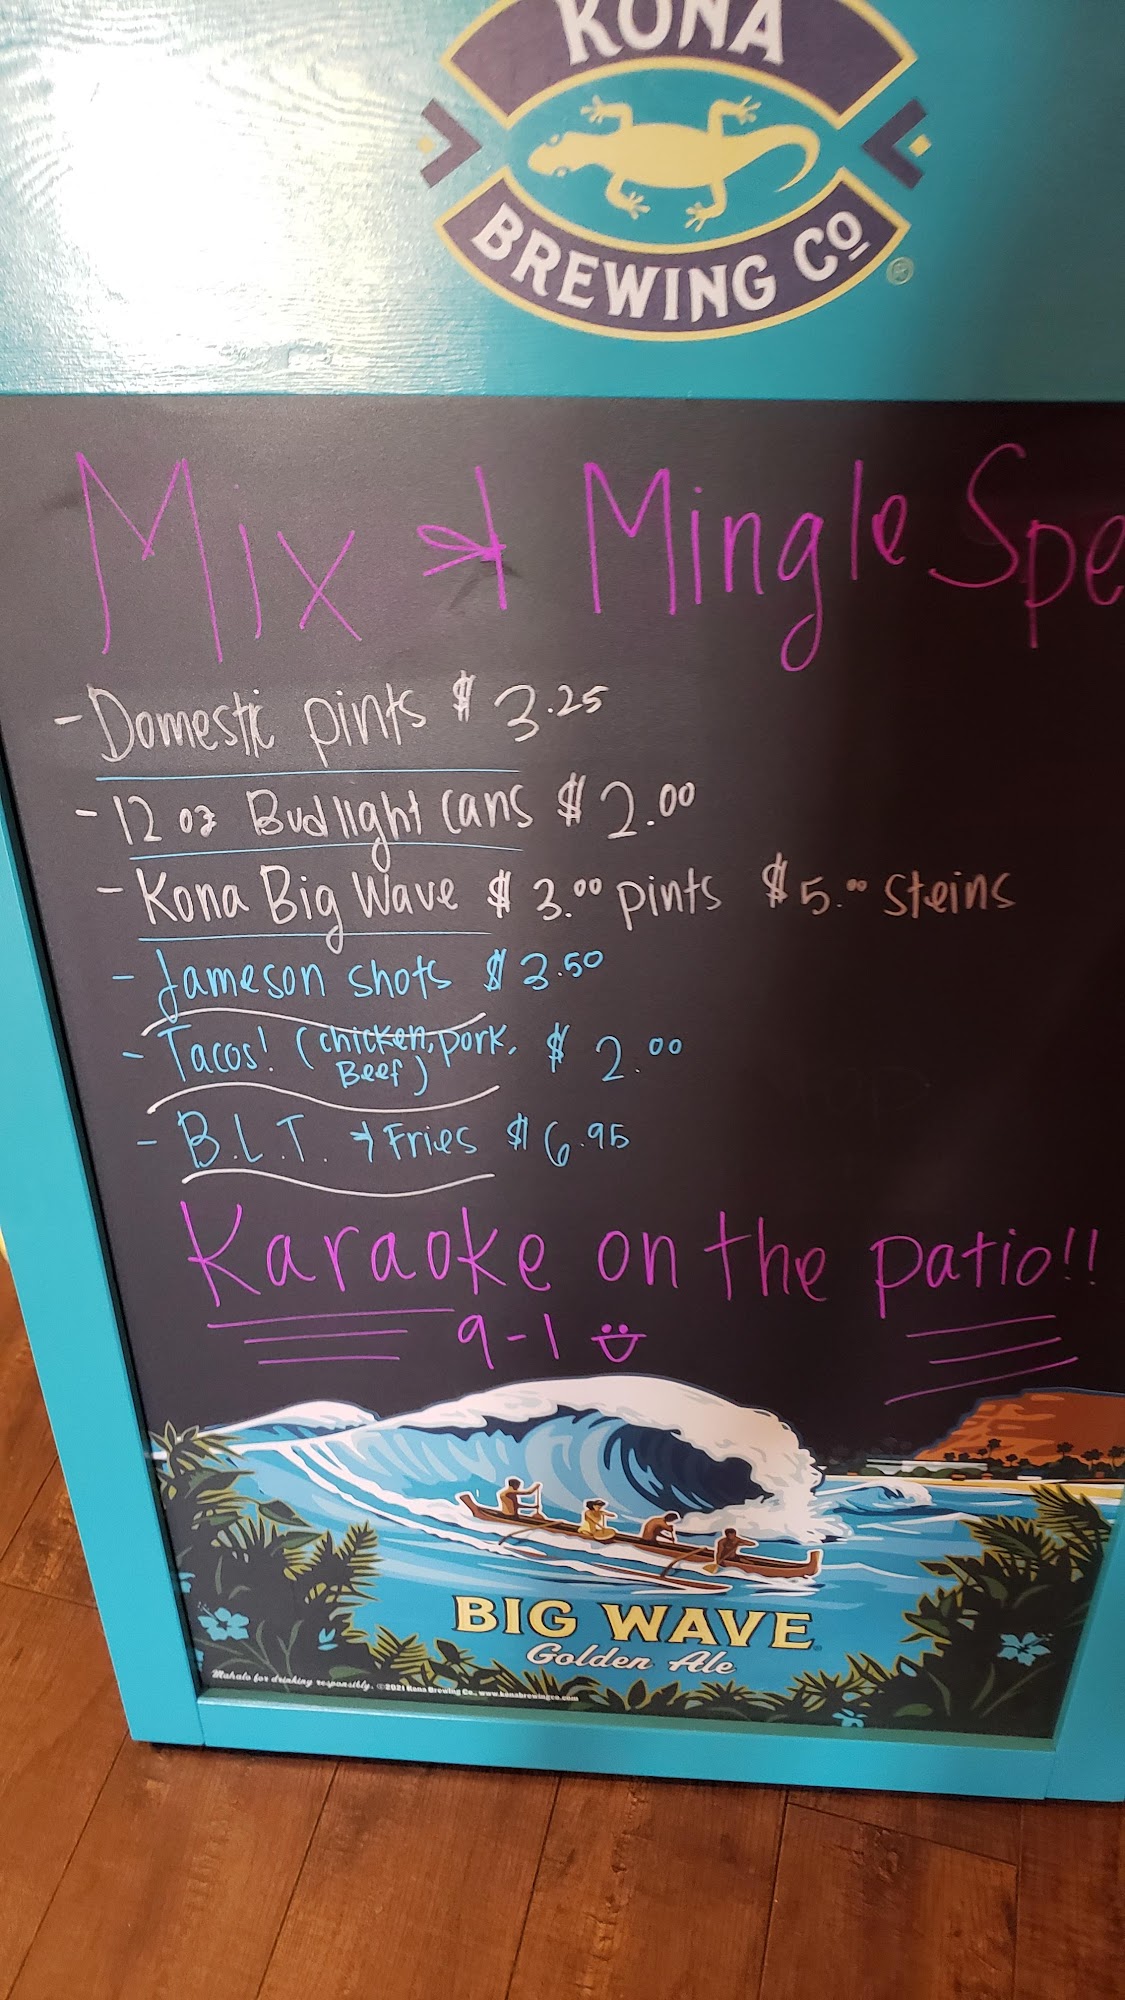 KONA
BREWING CO
®
Mix & Mingle Spe
- Domestic pints $3.25
- 12 oz Budlight Cans $2.00
- Kona Big Wave $3.00 pints $5.00 steins
- Jameson shots $3.50
- Tacos! (chicken, pork, $2.00
Beef)
- B.L.T. & Fries $6.95
Karaoke on the patio!!
9-1
BIG WAVE
Golden Ale
Mahalo for drinking responsibly. ©2021 Kona Brewing Co., www.konabrewingco.com